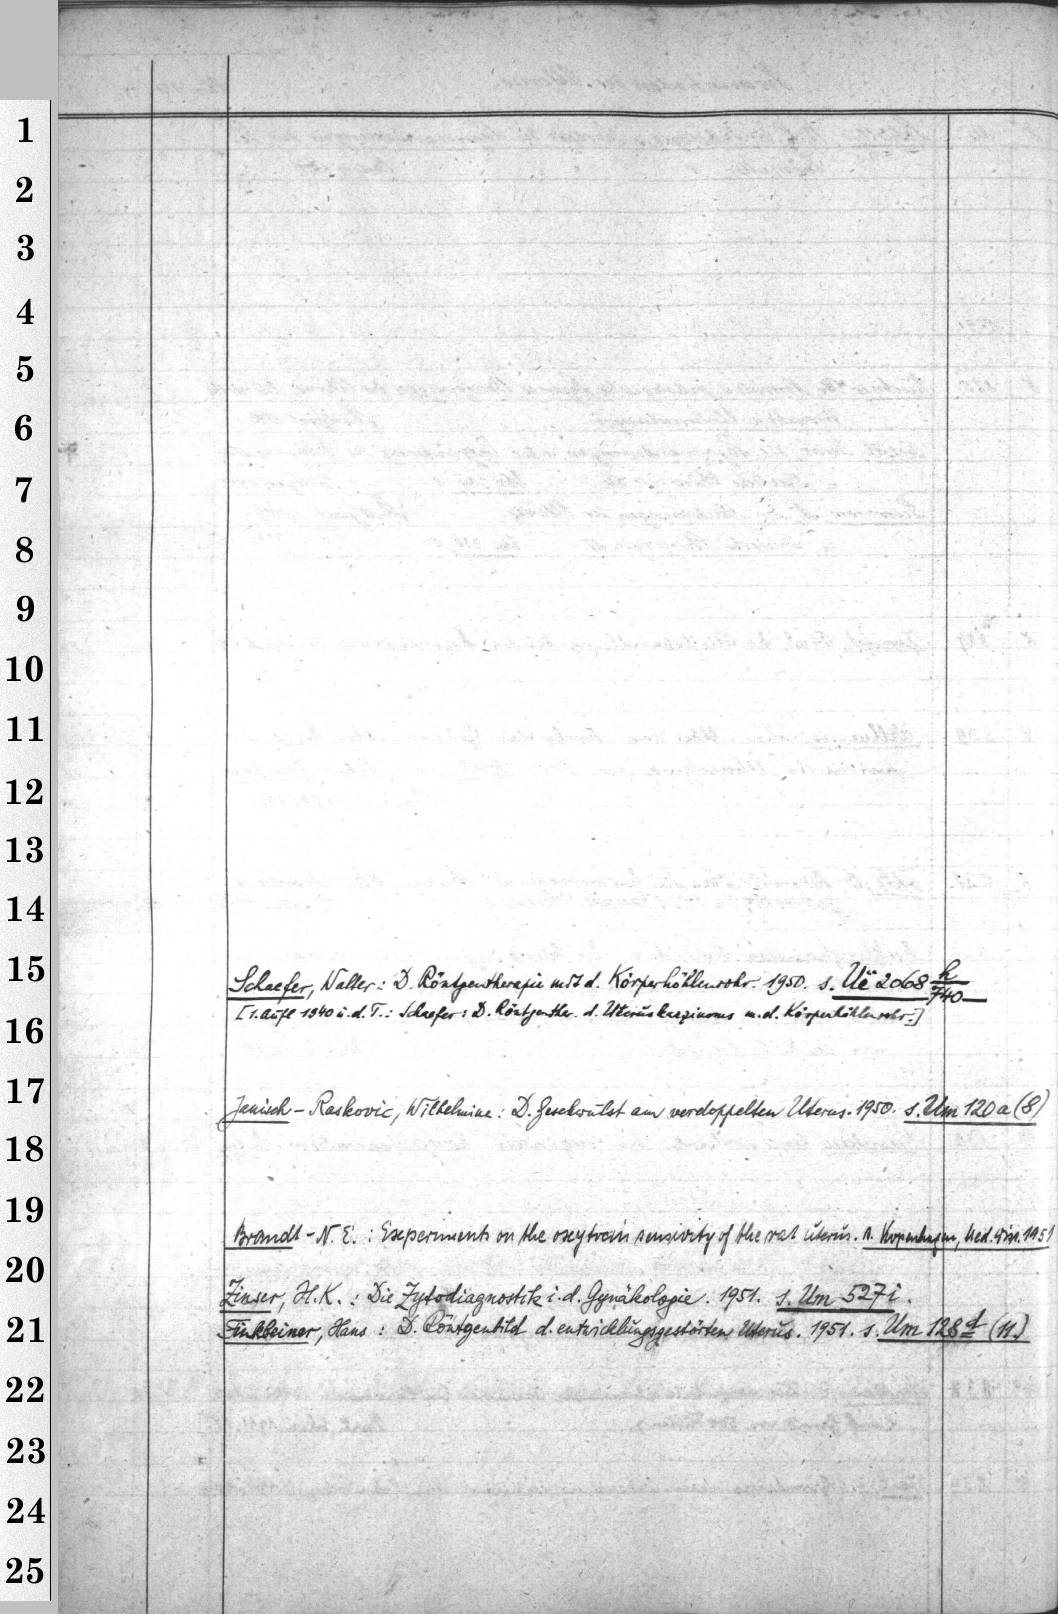 1
2
3
4
5
6
7
8
9
10
11
12
13
14
15
Schaefer, Walter: D. Röntgentherapie mit d. Körperhöhlenrohr. 1950. s. Uë 2068 h/740
[1. Aufl 1940 u. d. T.: Schaefer: D. Röntgenther. d. Uteruskarzinoms m. d. Körperhöhlenrohr.]
16
17
Janisch - Raskovic, Wilhelmine: D. Geschwulst am verdoppelten Uterus. 1950. s. Um 120 a (8)
18
19
Brandt - N. E. : Experiments on the oxytocin sensivity of the rat uterus. s. Kopenhagen, Med. Diss. 1951
20
Zinser, H. K. : Die Zytodiagnostik i. d. Gynäkologie. 1951. s. Um 527 i.
21
Finkbeiner, Hans : D. Röntgenbild d. entwicklungsgestörten Uterus. 1951. s. Um 128 d (11.)
22
23
24
25